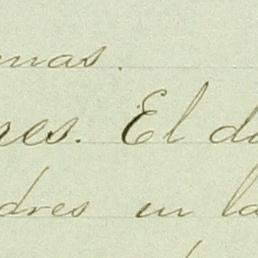 mas.
res. El d
dres en la